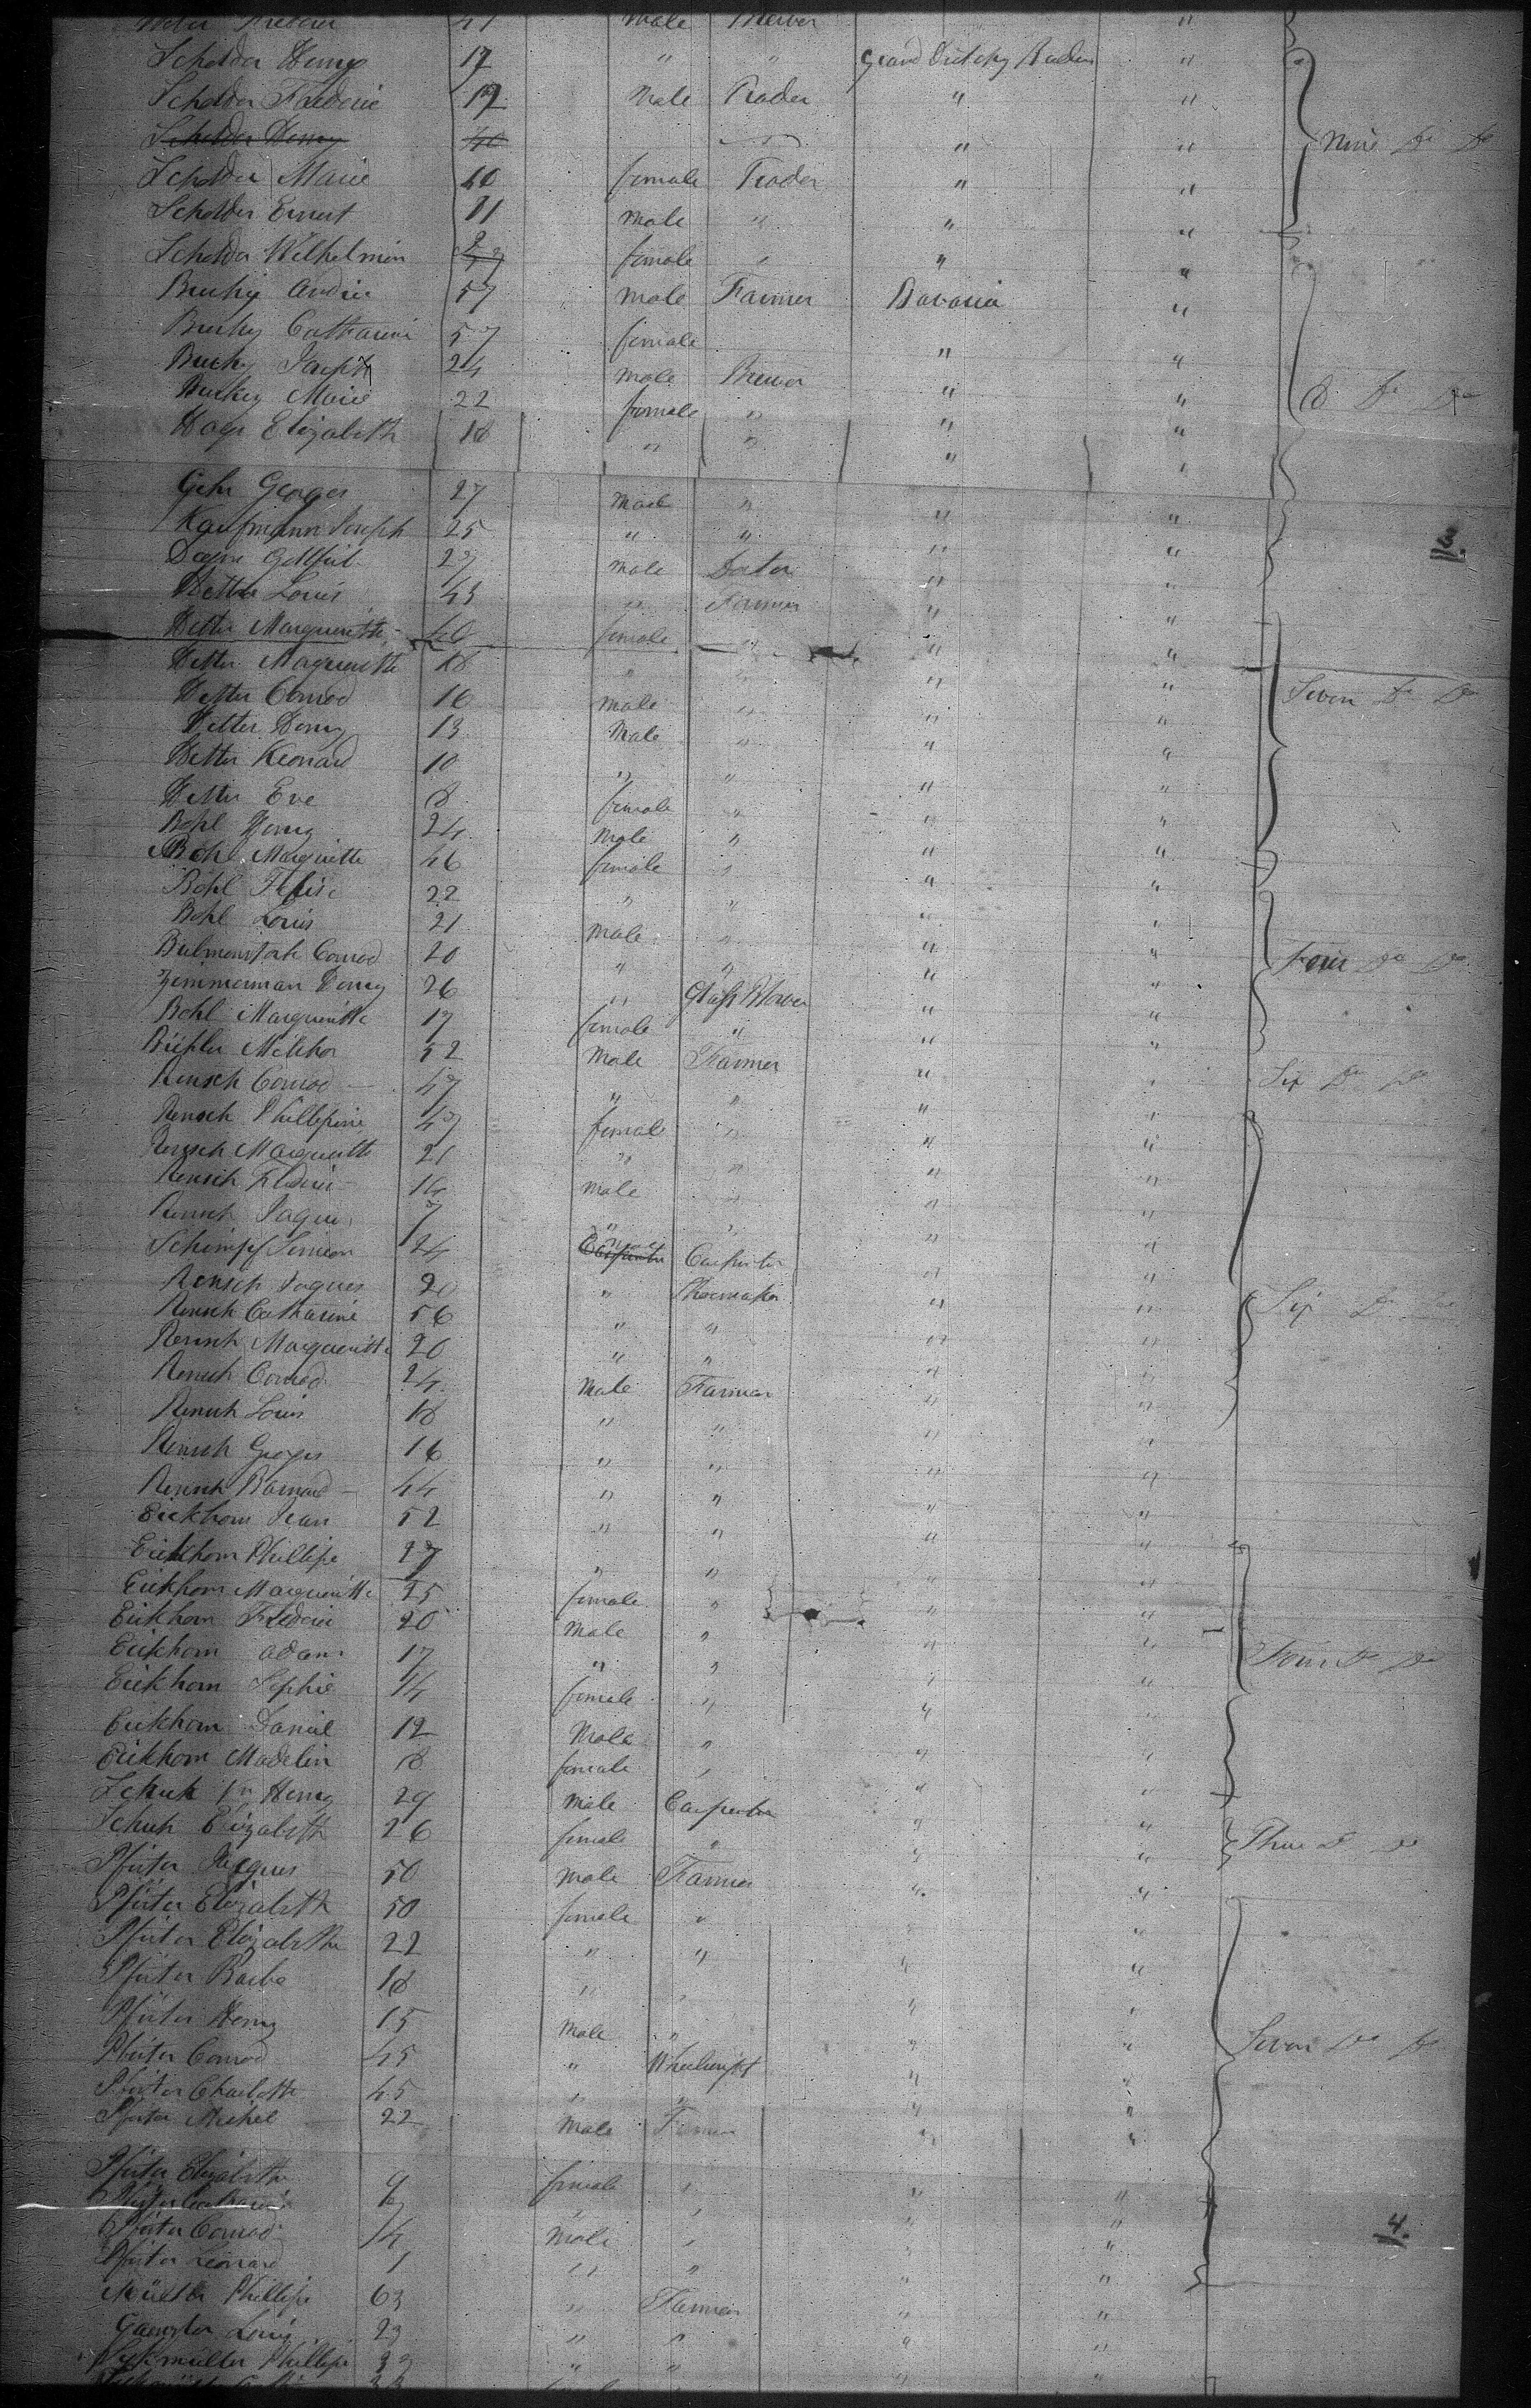 41 Male Brewer "
Scholder Henry 17 " " Grand Dutchy Baden "
Scholder Frederic 19 Male Trader " "
Scholder Henry 40 " " " Nine Do Do
Scholder Marie 40 female Trader " "
Scholder Ernest 11 Male " " "
Scholder Wilhelmin 9 female " " "
Buchy Andrie 57 Male Farmer Bavaria "
Buchy Catharine 57 female " "
Buchy Joseph 24 Male Brewer " "
Buchy Marie 22 female " " " 8 Do Do
Hays Elizabeth 18 " " " "
Gehr Georges 27 Male " " "
Kaufmann Joseph 25 " " " " 3.
Gottfried 27 Male Doctor " "
Vetter Louis 43 " Farmer " "
Vetter Margueritte 46 female " " "
Vetter Margueritte 18 " " " "
Vetter Conrad 16 Male " " " Seven Do Do
Vetter Henry 13 Male " " "
Vetter Leonard 10 " " " "
Vetter Eve 8 female " " "
Bohl Henry 24 Male " " "
Bohl Margueritte 46 female " " "
Bohl 22 " " " "
Bohl Louis 21 Male " " "
Conrad 20 " " " " Four Do Do
Zimmerman Henry 26 " Glass Blower " "
Bohl Margueritte 17 female " " "
Melchor 52 Male Farmer " "
Rensch Conrad 47 " " " " Six Do Do
Rensch Phillipine 47 female " " "
Rensch Margueritte 21 " " " "
Rensch Frederic 14 Male " " "
Rensch Jaques 7 " " " "
Schimpf Simeon 24 Carpenter Carpenter " "
Rensch Jaques 20 " Shoemaker " "
Rensch Catharine 56 " " " " Six Do Do
Rensch Margueritte 20 " " " "
Rensch Conrad 24 Male Farmer " "
Rensch Louis 18 " " " "
Rensch Georges 16 " " " "
Rensch Barnard 44 " " " "
Eickhorn Jean 52 " " " "
Eickhorn Phillipe 27 " " " "
Eickhorn Margueritte 25 female " " "
Eickhorn Frederic 20 Male " " "
Eickhorn Adam 17 " " " " Four Do Do
Eickhorn Sophie 14 female " " "
Eickhorn Daniel 12 Male " " "
Eickhorn Madelin 18 female " " "
Schuh Henry 29 Male Carpenter " "
Schuh Elizabeth 26 female " " " Three Do Do
Pfister Jacques 50 Male Farmer " "
Pfister Elizabeth 50 female " " "
Pfister Elizabethe 22 " " " "
Pfister Barbe 18 " " " "
Pfister Henry 15 Male " " "
Pfister Conrad 45 " Wheelwright " " Seven Do Do
Pfister Charlotte 45 " " " "
Pfister Michel 22 Male Farmer " "
Pfister Elizabethe 9 female " " "
Pfister Catharine 6 " " " "
Pfister Conrad 4 Male " " " 4.
Pfister Leonard 1 " " " "
Phillipe 63 " Farmer " "
Louis 23 " " " "
Phillipe 33 " " " "